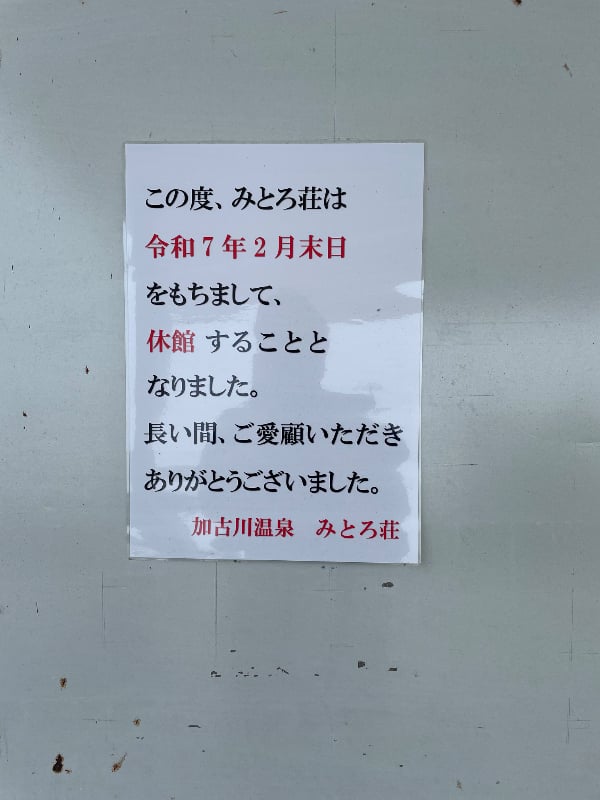 この度、みとろ荘は
令和7年2月末日
をもちまして、
休館 することと
なりました。
長い間、ご愛顧いただき
ありがとうございました。
加古川温泉　みとろ荘